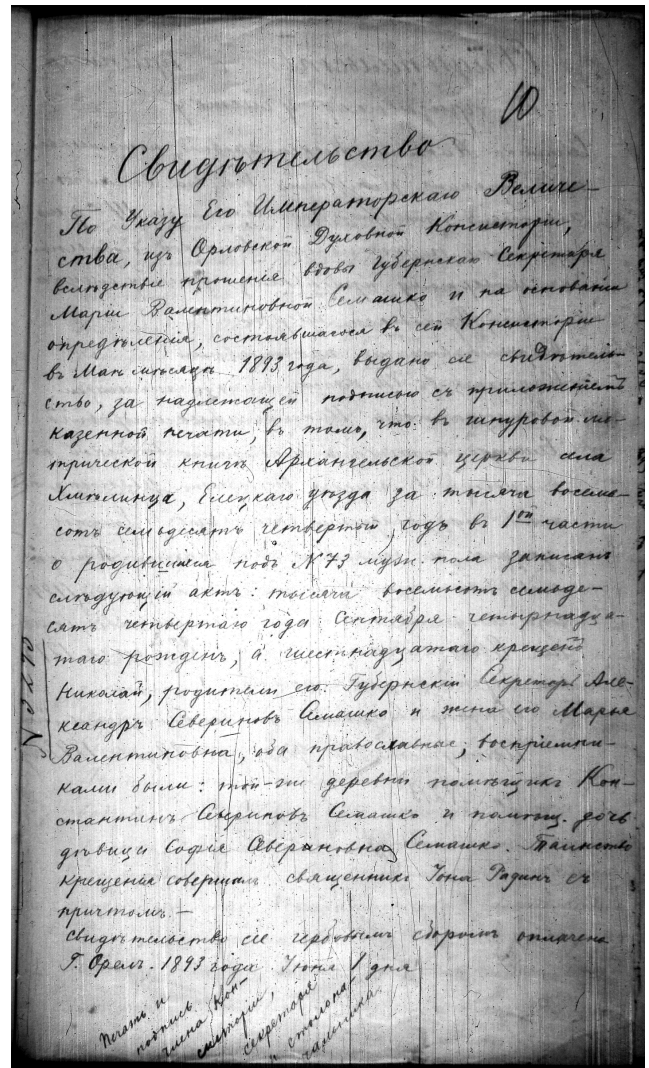 10
Свидѣтельство
По Указу Его Императорскаго Величе-
ства, изъ Орловской Духовной Консисторіи,
вслѣдствіе прошенія вдовы Губернскаго Секретаря
Маріи Валентиновной Семашко и на основаніи
опредѣленія, состоявшагося въ сей Консисторіи
въ Маѣ мѣсяцѣ 1893 года, выдано сіе свидѣтель-
ство, за надлежащей подписью съ приложеніемъ
казенной печати, въ томъ, что: въ шнуровой ме-
трической книгѣ Архангельской церкви села
Хмѣлинца, Елецкаго уѣзда за тысяча восемь-
сотъ семьдесятъ четвертый годъ въ 1ой части
о родившихся подъ № 73 мужн. пола записанъ
слѣдующій актъ: тысяча восемьсотъ семьде-
сятъ четвертаго года Сентября четырнадца-
таго рожденъ, а шестнадцатаго крещенъ
Николай, родители его: Губернскій Секретарь Але-
ксандръ Севериновъ Семашко и жена его Марья
Валентиновна, оба православные; воспріемни-
ками были: той-же деревни помѣщикъ Кон-
стантинъ Севериновъ Семашко и помѣщ. дочь
дѣвица Софія Севериновна Семашко. Таинство
крещенія совершалъ священникъ Іона Радинъ съ
причтомъ.—
Свидѣтельство сіе гербовымъ сборомъ оплачено
Г. Орелъ. 1893 года Іюня 1 дня
Печать и
подпись
члена Кон-
систоріи,
секретаря
и столона-
чальника